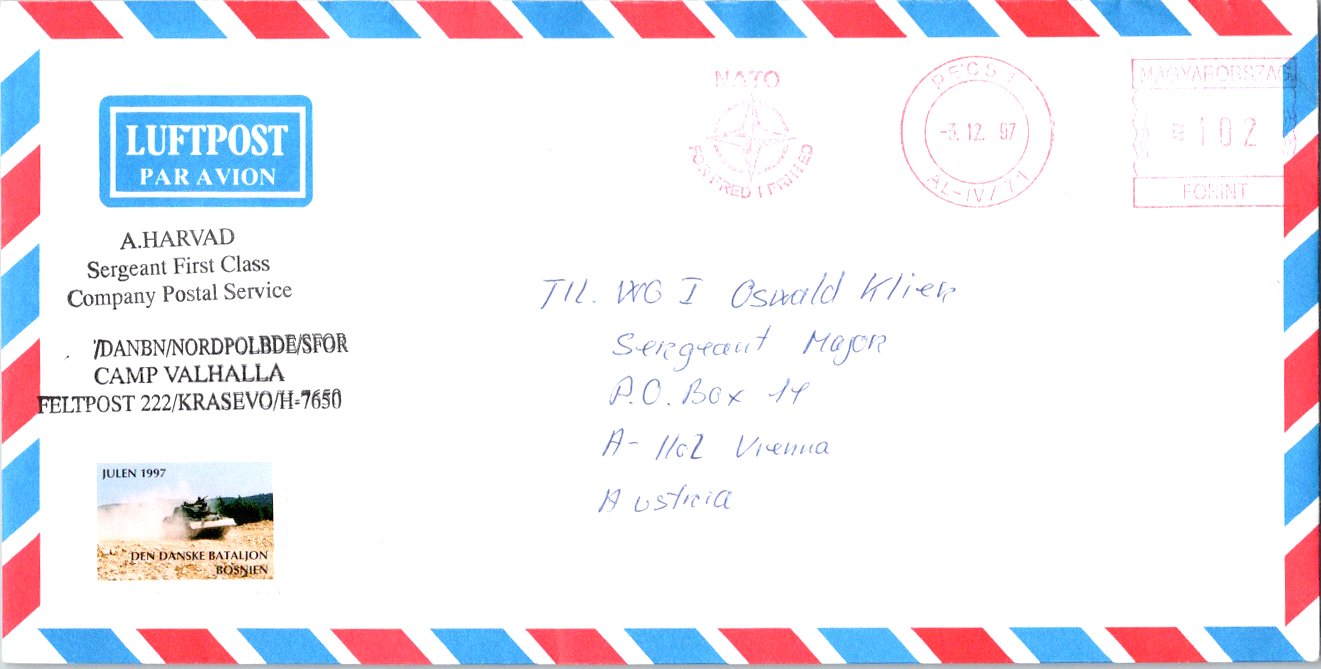 LUFTPOST
PAR AVION
A.HARVAD
Sergeant First Class
Company Postal Service
/DANBN/NORDPOLBDE/SFOR
CAMP VALHALLA
FELTPOST 222/KRASEVO/H-7650
JULEN 1997
DEN DANSKE BATALJON
BOSNIEN
NATO
FOR FRED I FRIHED
PECS 1
-3.12. 97
AL-IV/71
MAGYARORSZÁG
102
FORINT
TIL. WO I Oswald Klien
Sergeant Major
P.O. Box 14
A- 1102 Vienna
Austria